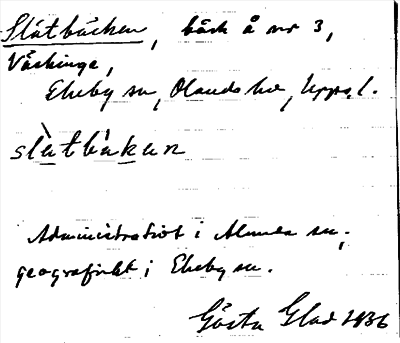 Slåtbäcken, bäck å nr 3,
Väskinge,
Ekeby sn, Olands hd, Upps. l.
slàtbækan
Administrativt i Alunda sn,
geografiskt i Ekeby sn.
Gösta Glad 1936